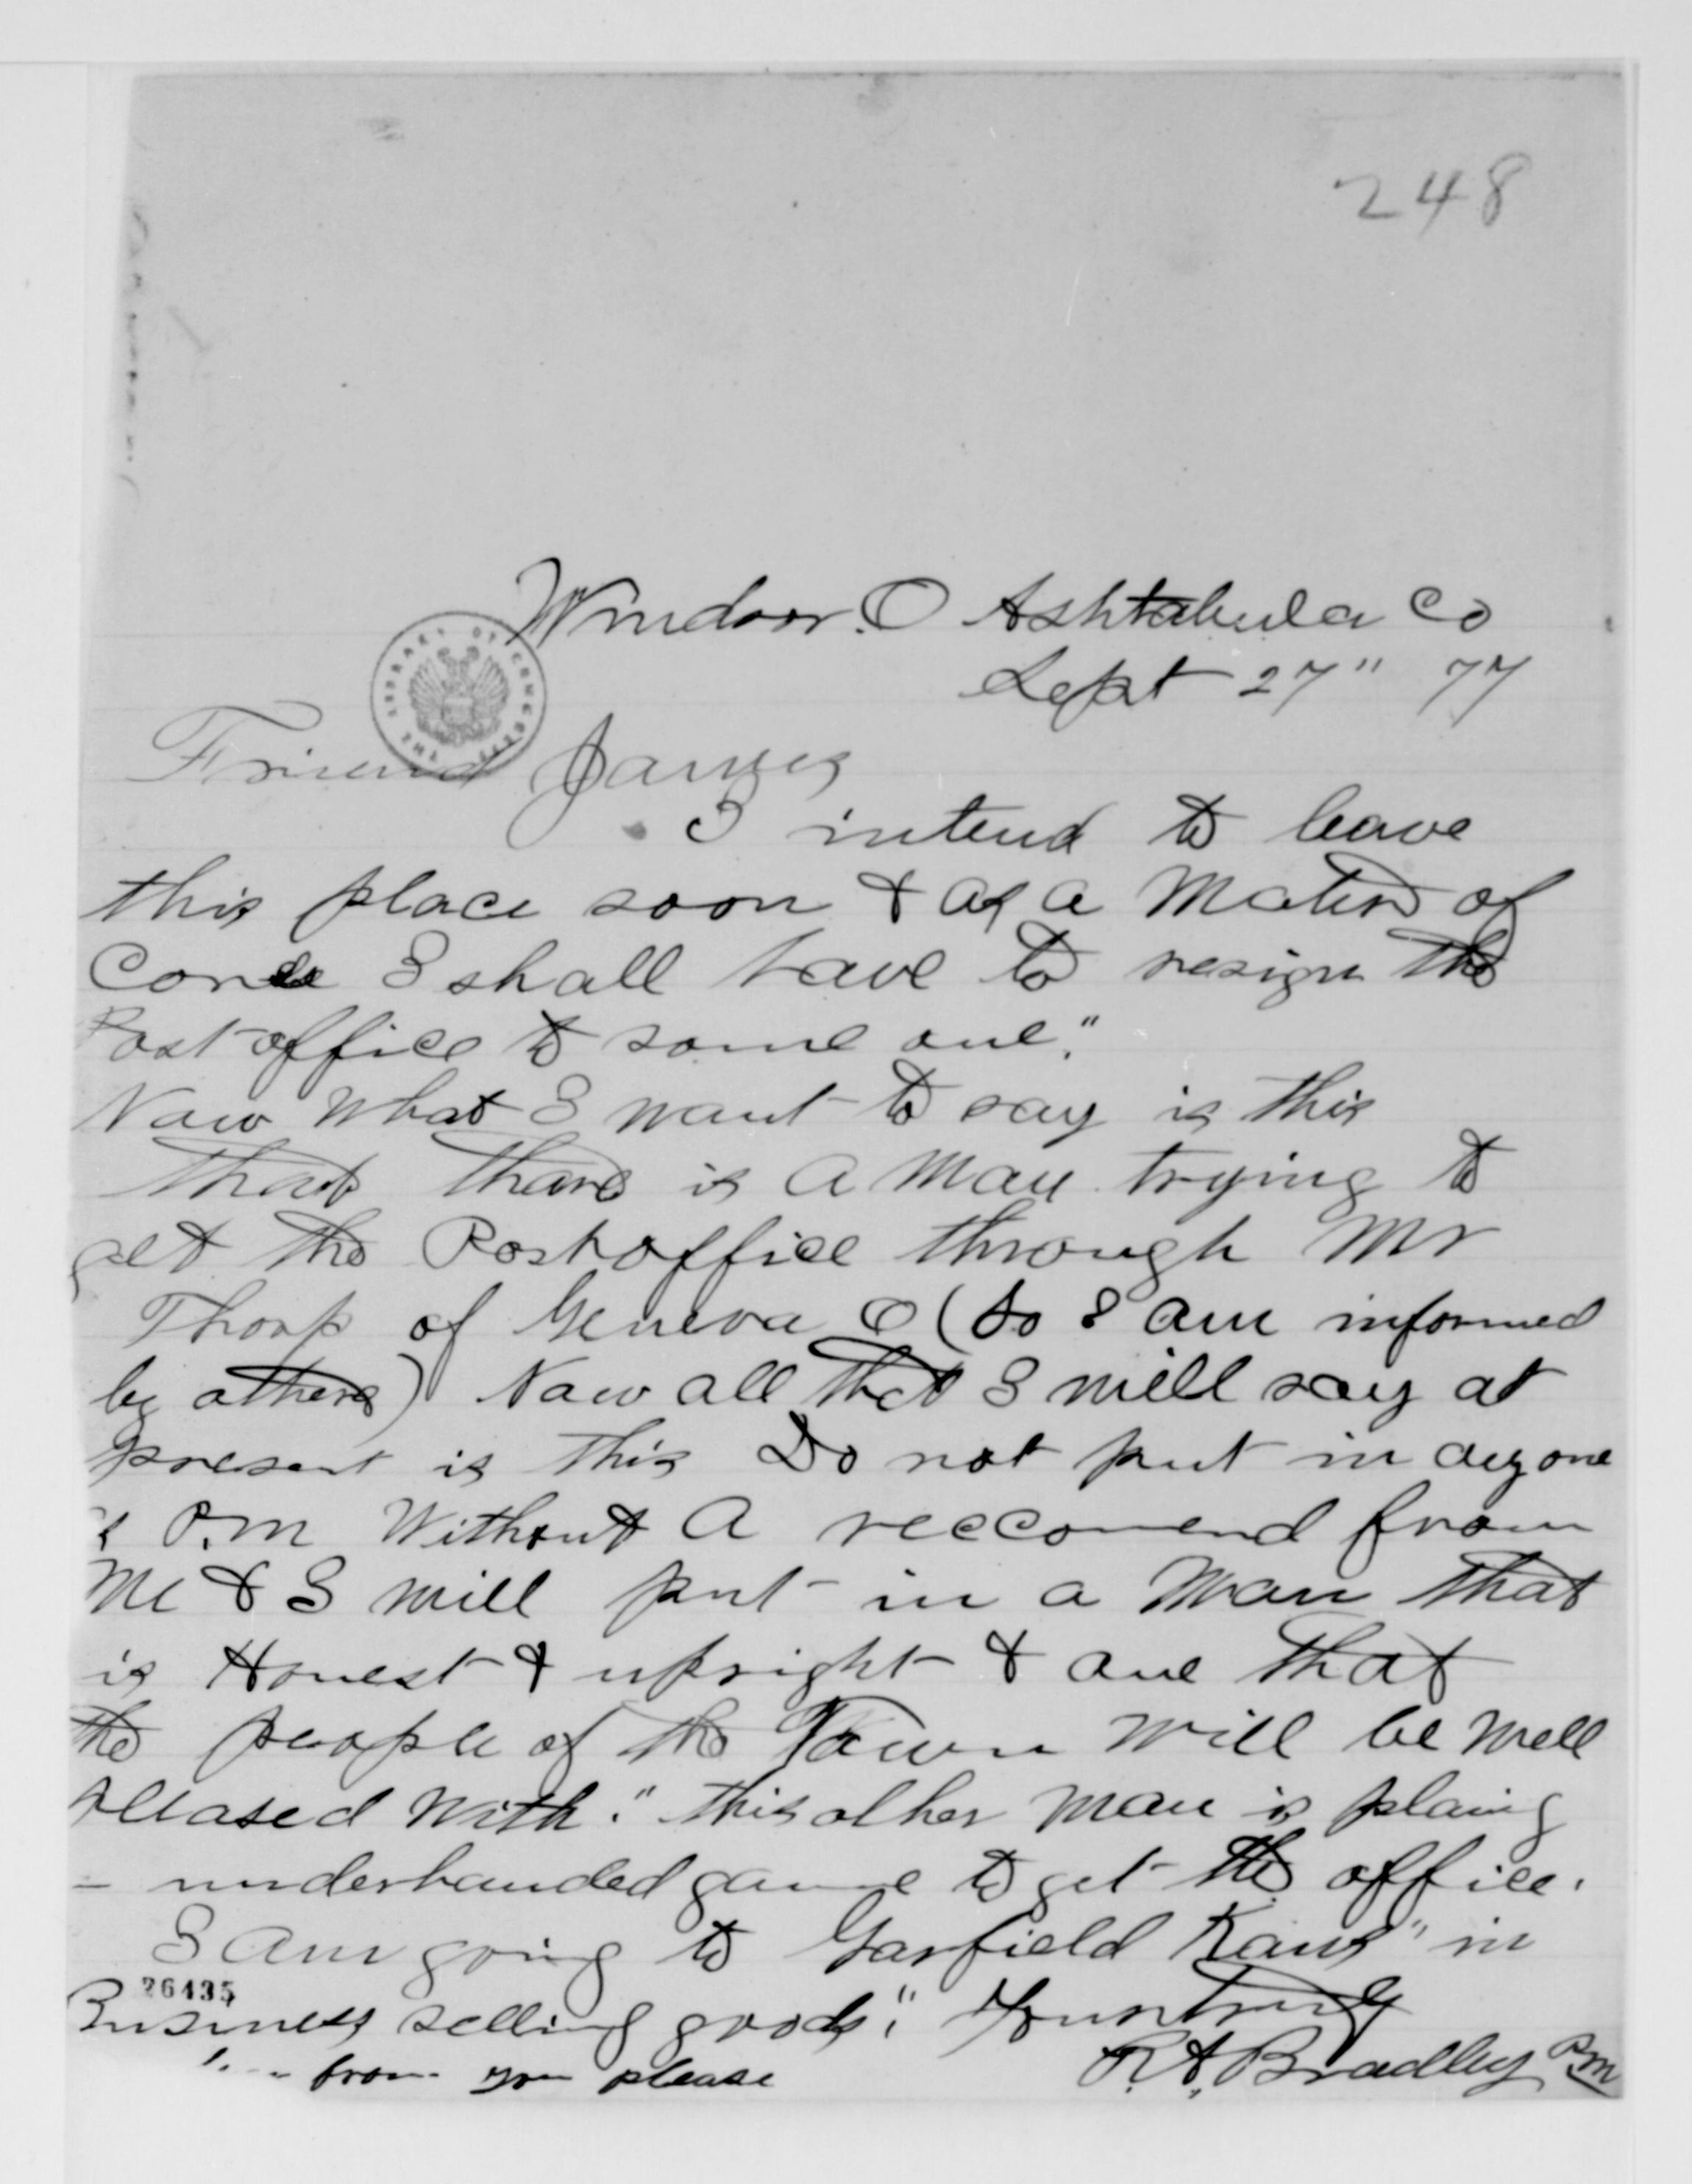 248
Windsor. O Ashtabula Co
Sept 27" 77
THE LIBRARY OF CONGRESS
Friend James
I intend to leave
this place soon & as a Mater of
I shall have to resign the
Post office to some one."
Now What I want to say is this
that thare is a Man trying to
get the Postoffice through Mr
Thorp of Geneva O (So I am informed
by others) Now all that I will say at
present is this Do not put in any one
P.M Without a reccomend from
Me & I will put in a Man that
is Honest & upright & one that
the people of the Town Will be Well
pleased With." this other Man is plaing
underhanded game to get the office.
I am going to Garfield Kans" in
26435
Business selling goods." Yours truly
R.A. Bradley P.M
from you please